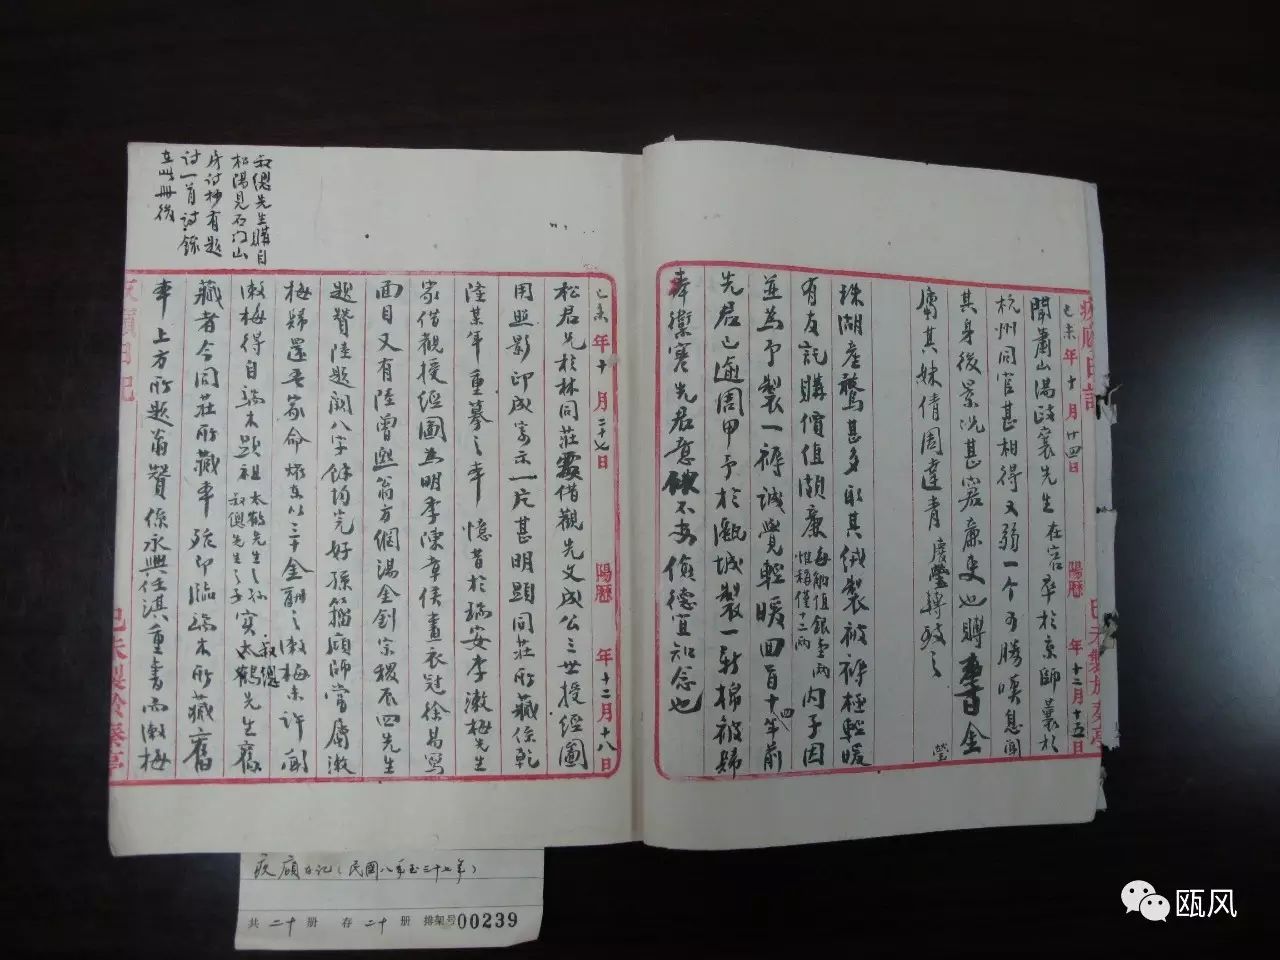 疚廎日記
己未年十月廿四日 陽歷 年十二月十五日
聞蕭山湯
先生在官卒於京師曩於
杭州同官甚相得又弱一个可勝嘆息聞
其身後景況甚窘廉吏也賻
金
屬其妹倩周達青慶瑩轉致之
珠湖產鶩甚多取其絨製被褥極輕暖
有友託購價值頗廉每觔值銀
惟稱僅十二兩
內子因
並為予製一褥誠覺輕暖回首十四年前
先君已逾周甲予於甌城製一新棉被歸
奉禦寒先君意
不安儉德宜知念也
己未年十月二十七日 陽歷 年十二月十八日
松君兄於林同莊處借觀先文成公三世授經圖
用照影印成寄示一片甚明顯同莊所藏係乾
陸某年重摹之本憶昔於瑞安李漱梅先生
家借觀授經圖為明季陳章侯畫衣冠徐易寫
面目又有陸曾熙翁方綱湯金釗宗稷辰四先生
題贊陸題闕八字餘均完好孫籀廎師嘗屬漱
梅歸還吾家命
以三十金酬之漱梅未許聞
漱梅得自端木題祖太鶴先生之孫
叔總先生之子
實太鶴先生舊
叔總
藏者今同莊所藏本殆即臨端木所藏舊
本上方所題
贊係永興任淇重書而漱梅
叔總先生購自
松陽見石門山
房詩抄有題
詩一首詩錄
在此冊後
疚廎日記
己未製於
亭
疚廎日記(民國八年至三十七年)
共二十冊 存二十冊 排架号00239
瓯风